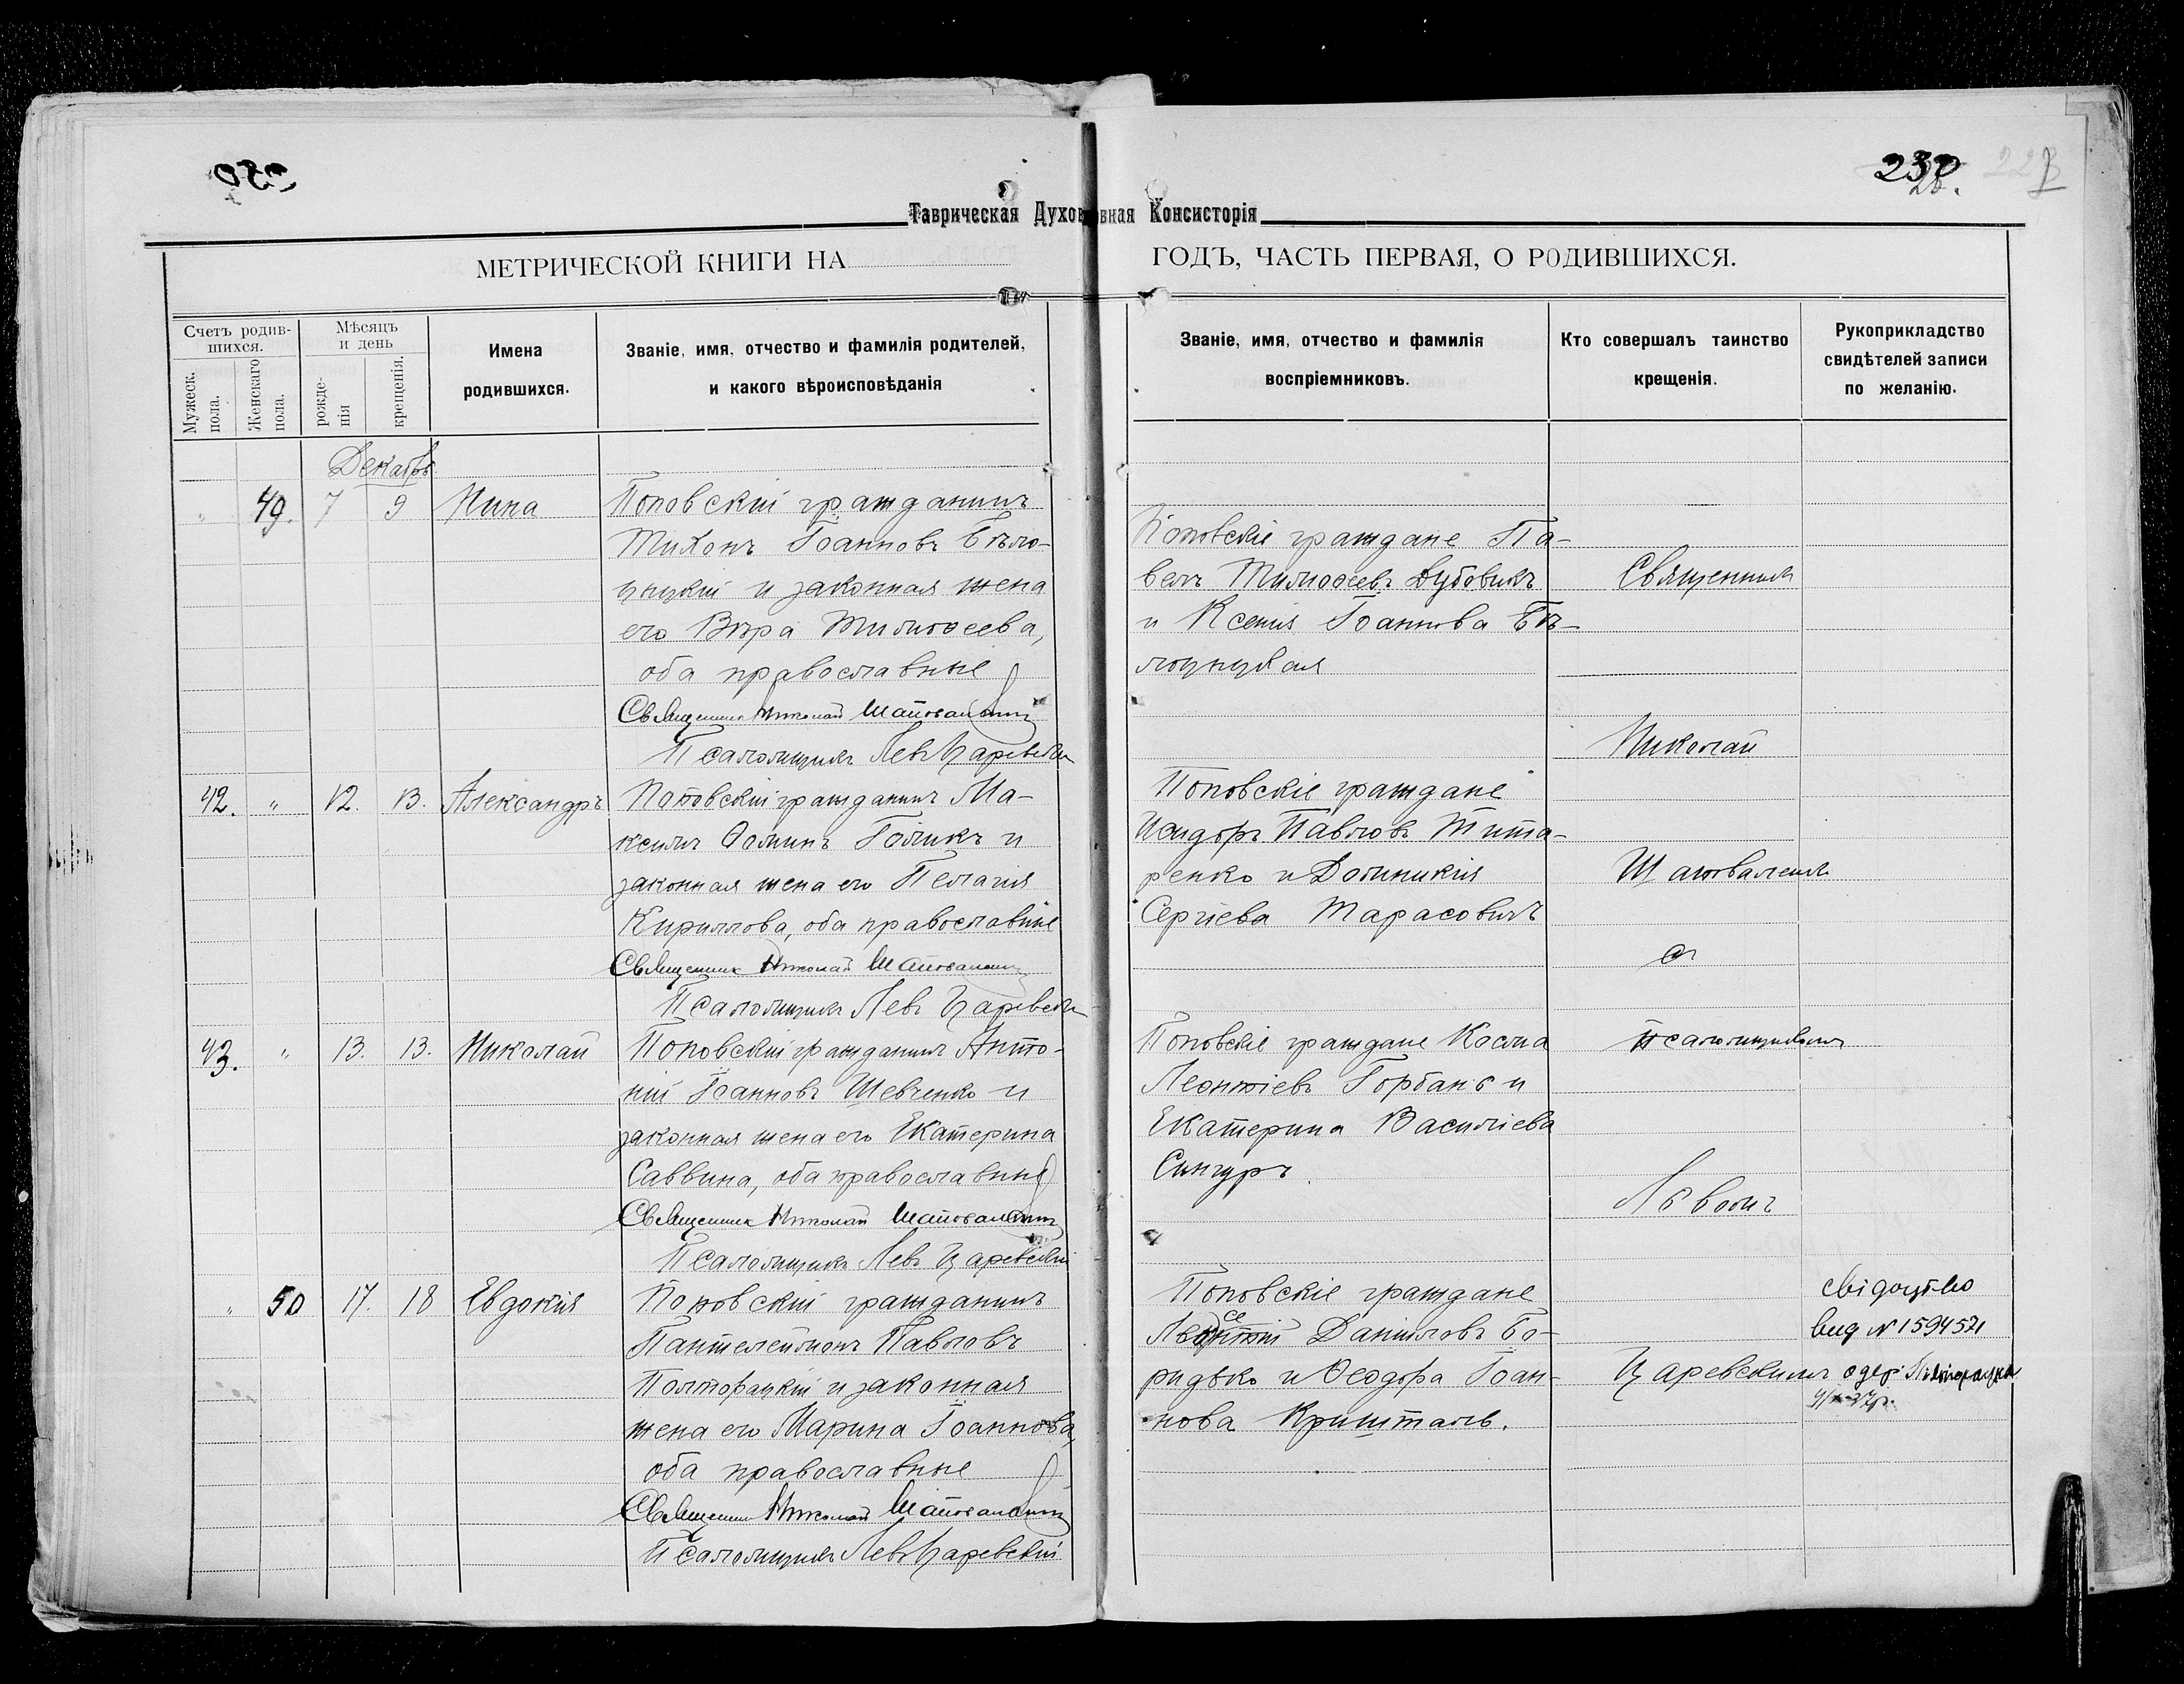 230
Таврическая Духовная Консисторія
МЕТРИЧЕСКОЙ КНИГИ НА
ГОДЪ, ЧАСТЬ ПЕРВАЯ, О РОДИВШИХСЯ.
Счетъ родившихся.
Мужеск. пола.
Женскаго пола.
Мѣсяцъ и день
рожденія
крещенія.
Имена родившихся.
Званіе, имя, отчество и фамилія родителей, и какого вѣроисповѣданія
Званіе, имя, отчество и фамилія воспріемниковъ.
Кто совершалъ таинство крещенія.
Рукоприкладство свидѣтелей записи по желанію.
Декабрь
" 49. 7 9 Нина Поповскій гражданинъ
Тихонъ Іоанновъ Бѣло-
цыцкій и законная жена
его Вѣра Тимоѳеева,
оба православные
Священникъ Николай Шаповаленко
Псаломщикъ Левъ Царевскій
42. " 12. 13. Александръ Поповскій гражданинъ Ма-
ксимъ Ѳоминъ Голикъ и
законная жена его Пелагія
Кириллова, оба православные
Священникъ Николай Шаповаленко
Псаломщикъ Левъ Царевскій
43. " 13. 13. Николай Поповскій гражданинъ Анто-
ній Іоанновъ Шевченко и
законная жена его Екатерина
Саввина, оба православные
Священникъ Николай Шаповаленко
Псаломщикъ Левъ Царевскій
" 50 17. 18 Евдокія Поповскій гражданинъ
Пантелеймонъ Павловъ
Полторацкій и законная
жена его Марина Іоаннова,
оба православные
Священникъ Николай Шаповаленко
Псаломщикъ Левъ Царевскій
Поповскіе граждане Па-
велъ Тимоѳеевъ Дубовикъ
и Ксенія Іоаннова Бѣ-
лоцыцкая
Поповскіе граждане
Исидоръ Павловъ Тита-
ренко и Домникія
Сергіева Тарасовичъ
Поповскіе граждане Косма
Леонтіевъ Горбань и
Екатерина Василіева
Сингуръ.
Поповскіе граждане
Даніиловъ Бо-
ридько и Ѳеодора Іоан-
нова Кришталь.
Священникъ
Николай
Шаповаленко
съ
псаломщикомъ
Львомъ
Царевскимъ
свідоцтво
вид N 1594521
одер.